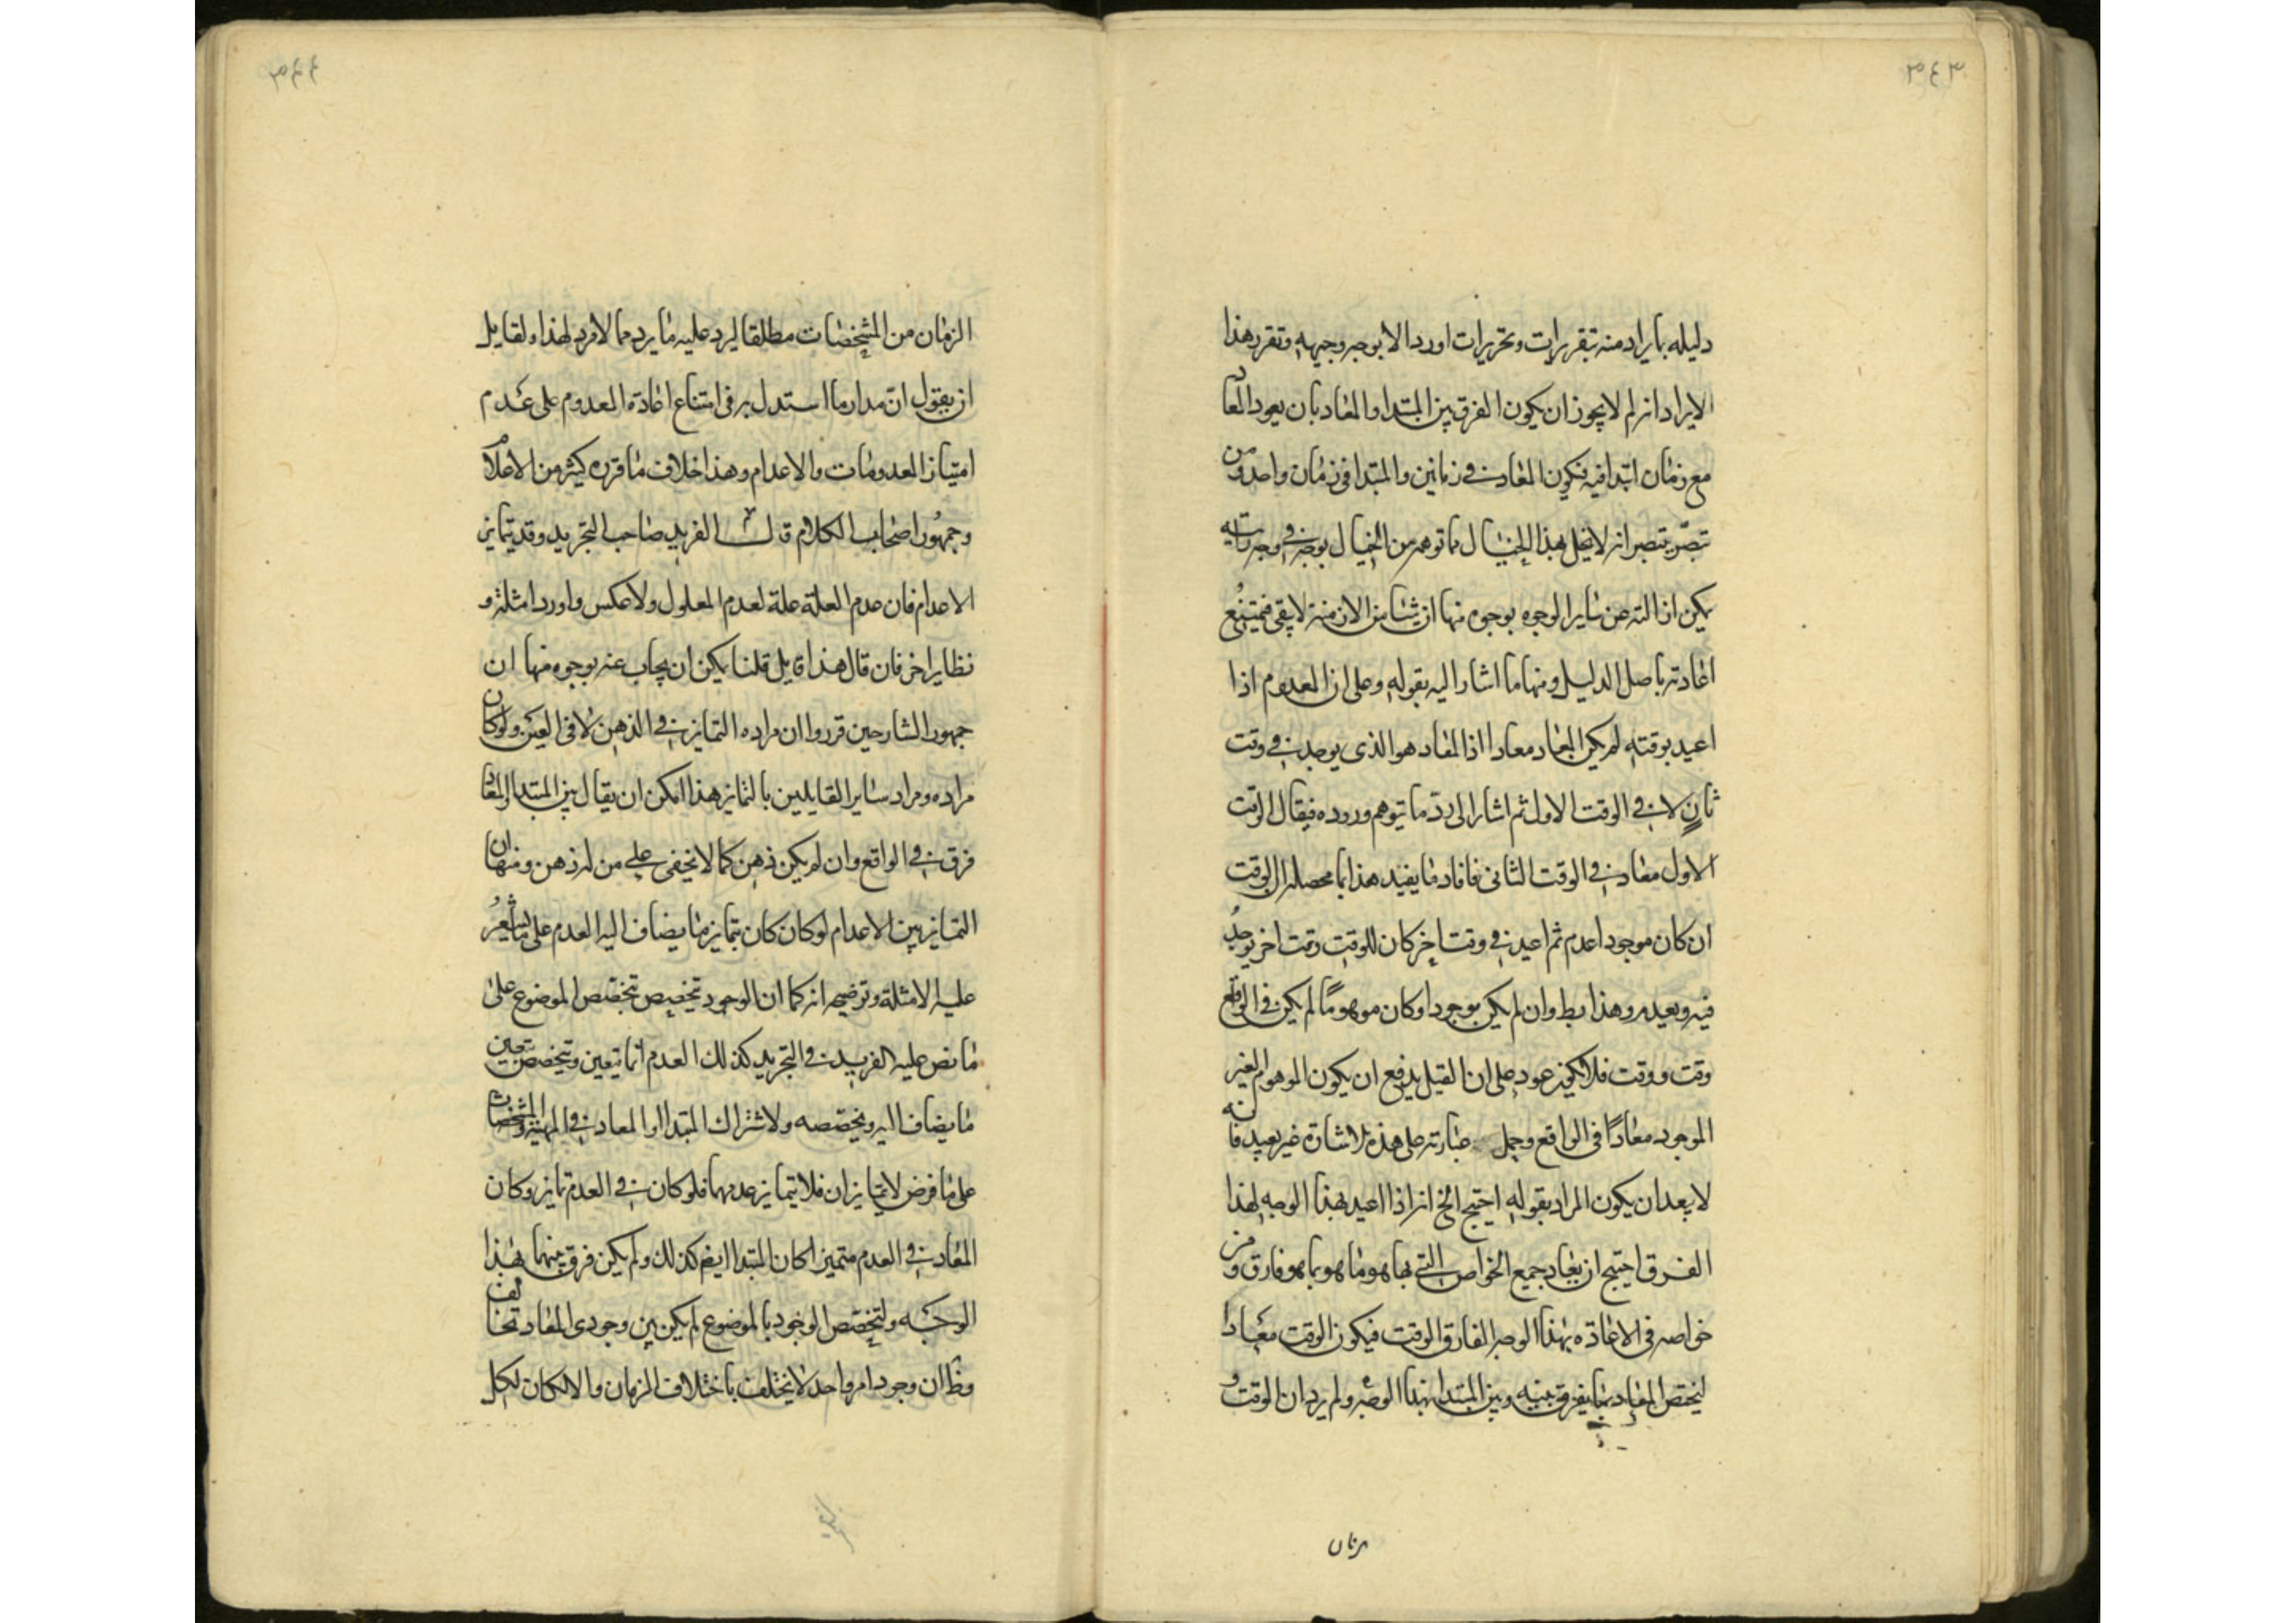 ٣٤٣
دليله بايراد منه تبقريرات وتحريرات اوردالا بوجه وجيهه وتقرر هذا
الايراد انه لم لا يجوز ان يكون الفرق بين المبتدا والمعاد بان يعود المعاد
مع زمان ابتدا فيه فيكون المعاد في زمانين والمبتدا في زمان واحد ومن
تبصر بتبصر انه لا يخل بهذا الخيال ما توهم من الخيال بوجه في وجه
يمكن ازالته عن ساير الوجوه بوجوه منها ان شيئا من الازمنة لا يبقى فيمتنع
اعادته باصل الدليل ومنها ما اشار اليه بقوله وعلى ان المعدوم اذا
اعيد بوقته لم يكن المعاد معادا اذ المعاد هو الذى يوجد في وقت
ثانٍ لا في الوقت الاول ثم اشار الى ردّ ما يتوهم وروده فيقال الوقت
الاول معاد في الوقت الثانى فافاد ما يفيد هذا بما محصله ان الوقت
ان كان موجودا عدم ثم اعيد في وقت اخر كان للوقت وقت اخر يوجد
فيه ويعيده وهذا بط وان لم يكن موجودا وكان موهومًا لم يكن في الواقع
وقت ووقت فلا يكون عود على ان القيل يدفع ان يكون الموهوم الغير
الموجود معادًا في الواقع وحمل عبارته على هذه الاشارة غير بعيد فانه
لا يبعد ان يكون المراد بقوله احتيج الخ انه اذا اعيد بهذا الوجه لهذا
الفرق احتيج ان يعاد جميع الخواص التي بها هو ما هو بما هو فارق ومن
خواصه في الاعادة بهذا الوجه الفارق الوقت فيكون الوقت معادا
ليختص المعاد بما يفرق بينه وبين المبتدا بهذا الوجه ولم يرد ان الوقت و
٣٤٤
الزمان من المشخصات مطلقا ليرد عليه ما يرد مما لا مرد لهذا ولقايل
ان يقول انّ مدار ما استدل به في امتناع اعادة المعدوم على عدم
امتياز المعدومات والاعدام وهذا خلاف ما قرره كثير من الاعلام
وجمهور اصحاب الكلام قال الفريد صاحب التجريد وقد يتمايز
الاعدام فان عدم العلة علة لعدم المعلول ولا عكس واورد امثلة و
نظاير اخر فان قال هذا قايل قلنا يمكن ان يجاب عنه بوجوه منها ان
جمهور الشارحين قرروا ان مراده التمايز في الذهن لا في العين ولو كان
مراده ومراد ساير القايلين بالتمايز هذا امكن ان يقال بين المبتدا والمعاد
فرق في الواقع وان لم يكن ذهن كما لا يخفى على من له ذهن ومنها ان
التمايز بين الاعدام لو كان كان بتمايز ما يضاف اليه العدم على ما يشعر
عليه الامثلة وتوضيحه انه كما ان الوجود تخصيص بتخصص الموضوع على
ما نص عليه الفريد في التجريد كذلك العدم انما يتعين ويتخصص بتعين
ما يضاف اليه ويخصصه ولاشتراك المبتدا والمعاد في المهية والمشخصات
على ما فرض لا يتمايزان فلا يتمايز عدمهما فلو كان في العدم تمايز وكان
المعاد في العدم متميزا كان المبتدا ايضا كذلك ولم يكن فرق بينهما بهذا
الوجه ولتخصص الوجود بالموضوع لم يكن بين وجودى المعاد تخالف
وظ ان وجود امر واحد لا يختلف باختلاف الزمان والا لكان لكل